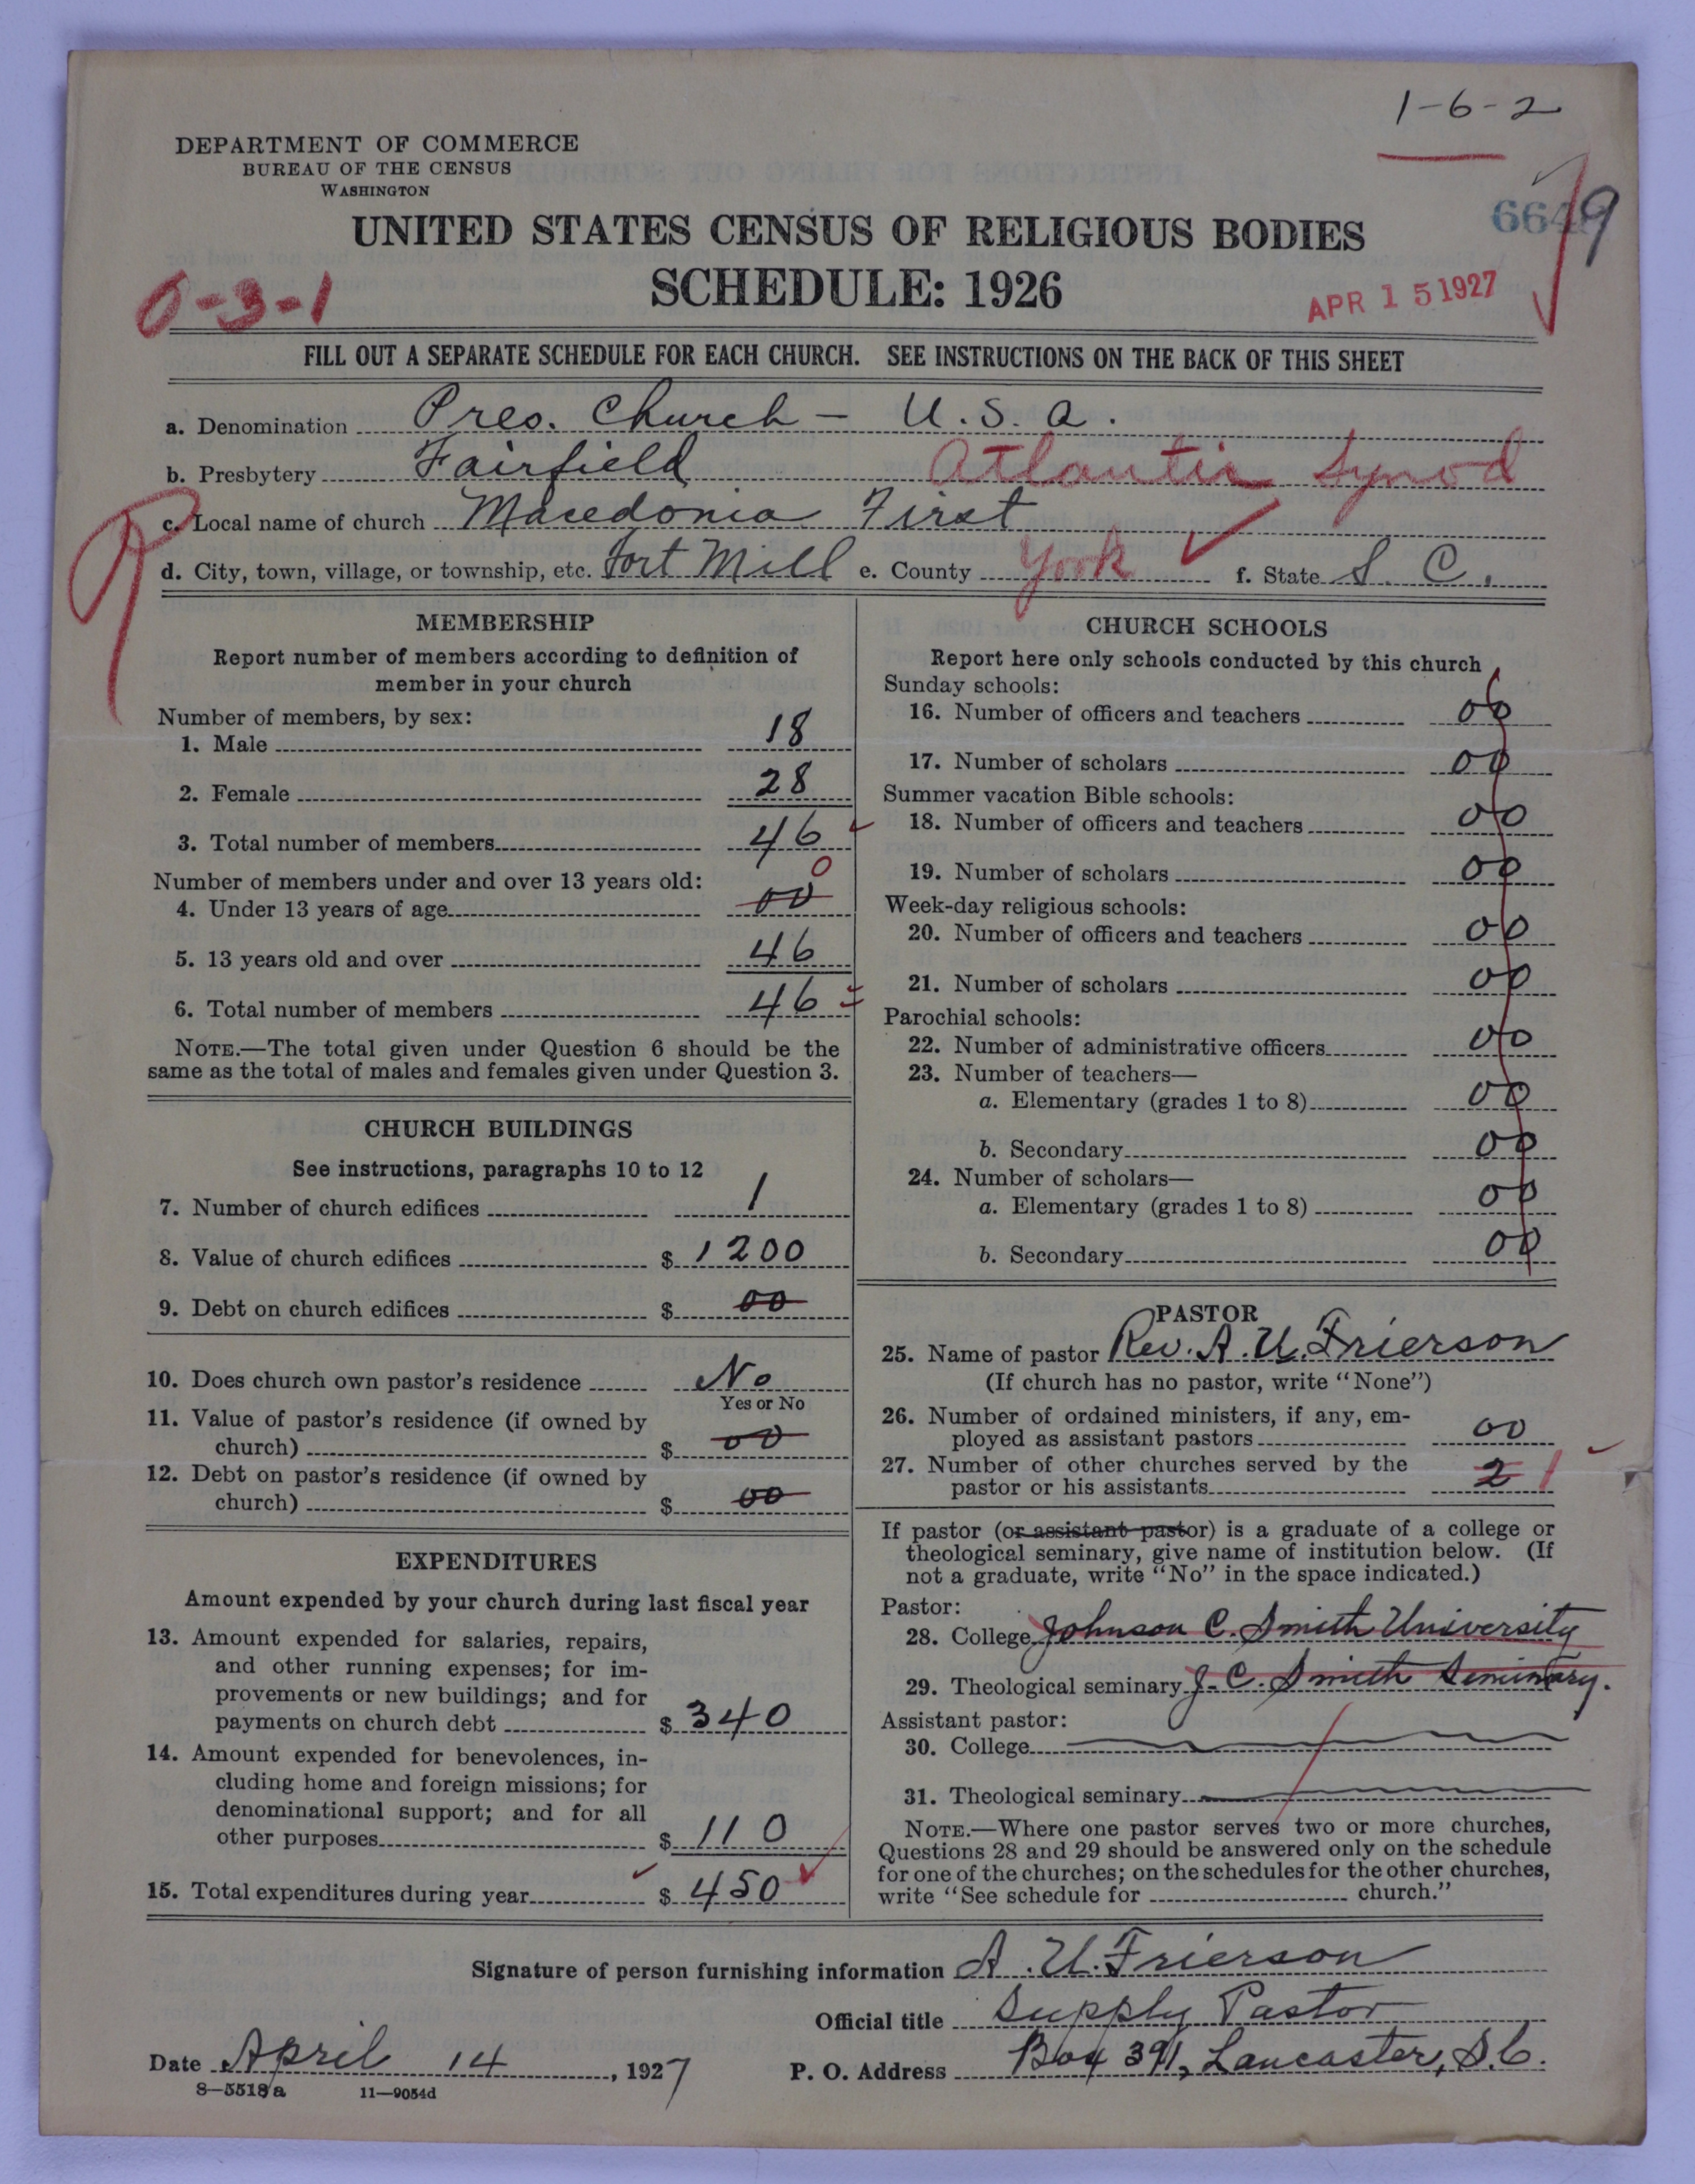 1-6-2
DEPARTMENT OF COMMERCE
BUREAU OF THE CENSUS
WASHINGTON
UNITED STATES CENSUS OF RELIGIOUS BODIES
SCHEDULE: 1926
664 9
0-3-1
APR 15 1927
FILL OUT A SEPARATE SCHEDULE FOR EACH CHURCH. SEE INSTRUCTIONS ON THE BACK OF THIS SHEET
a. Denomination Pres. Church - U.S.a.
b. Presbytery Fairfield Atlantic Synod
c. Local name of church Macedonia First
d. City, town, village, or township, etc. Fort Mill e. County York f. State S. C.
MEMBERSHIP
Report number of members according to definition of
member in your church
Number of members, by sex:
1. Male 18
2. Female 28
3. Total number of members 46
Number of members under and over 13 years old:
4. Under 13 years of age 00 0
5. 13 years old and over 46
6. Total number of members 46
NOTE.—The total given under Question 6 should be the
same as the total of males and females given under Question 3.
CHURCH BUILDINGS
See instructions, paragraphs 10 to 12
7. Number of church edifices 1
8. Value of church edifices $ 1200
9. Debt on church edifices $ 00
10. Does church own pastor's residence No
Yes or No
11. Value of pastor's residence (if owned by
church) $ 00
12. Debt on pastor's residence (if owned by
church) $ 00
EXPENDITURES
Amount expended by your church during last fiscal year
13. Amount expended for salaries, repairs,
and other running expenses; for im-
provements or new buildings; and for
payments on church debt $ 340
14. Amount expended for benevolences, in-
cluding home and foreign missions; for
denominational support; and for all
other purposes $ 110
15. Total expenditures during year $ 450
CHURCH SCHOOLS
Report here only schools conducted by this church
Sunday schools:
16. Number of officers and teachers 00
17. Number of scholars 00
Summer vacation Bible schools:
18. Number of officers and teachers 00
19. Number of scholars 00
Week-day religious schools:
20. Number of officers and teachers 00
21. Number of scholars 00
Parochial schools:
22. Number of administrative officers 00
23. Number of teachers—
a. Elementary (grades 1 to 8) 00
b. Secondary 00
24. Number of scholars—
a. Elementary (grades 1 to 8) 00
b. Secondary 00
PASTOR
25. Name of pastor Rev. A. U. Frierson
(If church has no pastor, write "None")
26. Number of ordained ministers, if any, em-
ployed as assistant pastors 00
27. Number of other churches served by the
pastor or his assistants 2 1
If pastor (or assistant pastor) is a graduate of a college or
theological seminary, give name of institution below. (If
not a graduate, write "No" in the space indicated.)
Pastor:
28. College Johnson C. Smith University
29. Theological seminary J. C. Smith Seminary.
Assistant pastor:
30. College
31. Theological seminary
NOTE.—Where one pastor serves two or more churches,
Questions 28 and 29 should be answered only on the schedule
for one of the churches; on the schedules for the other churches,
write "See schedule for church."
Signature of person furnishing information A. U. Frierson
Official title Supply Pastor
Date April 14, 1927 P. O. Address Box 391, Lancaster, S.C.
8—5518a 11—9054d